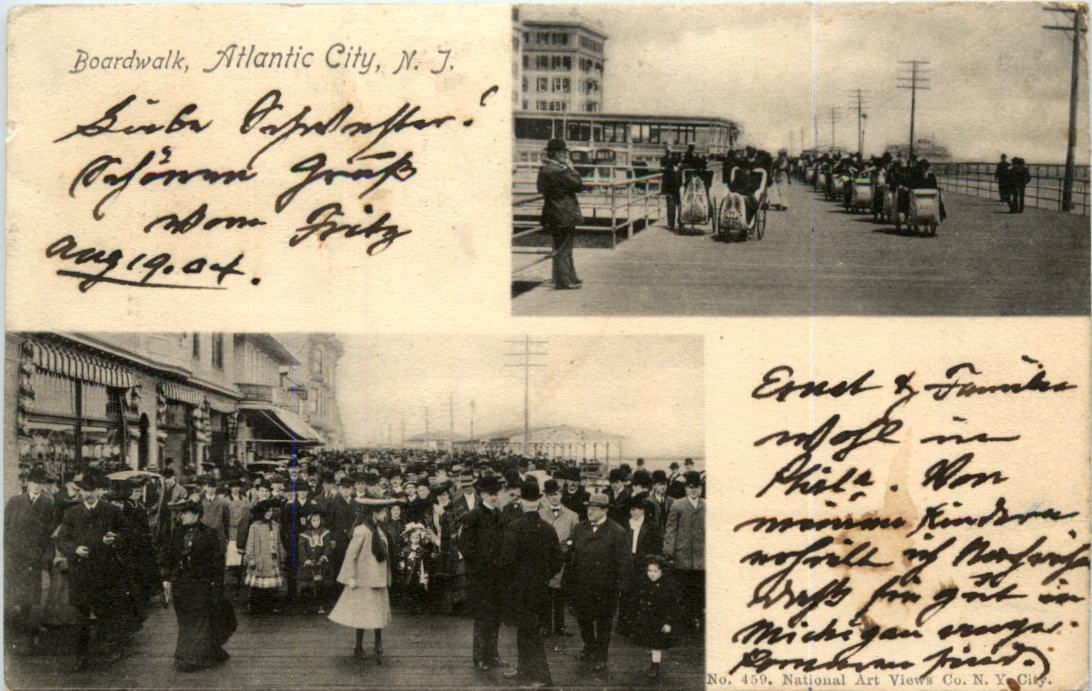 Boardwalk, Atlantic City, N. J.
Liebe Schwester!
Schönen Gruß
vom Fritz
Aug 19. 04.
Ernst & Familie
wohl in
Phila. Von
meinen Kindern
erhielt ich Nachricht
daß sie gut in
Michigan ange-
kommen sind.
No. 459. National Art Views Co. N. Y. City.